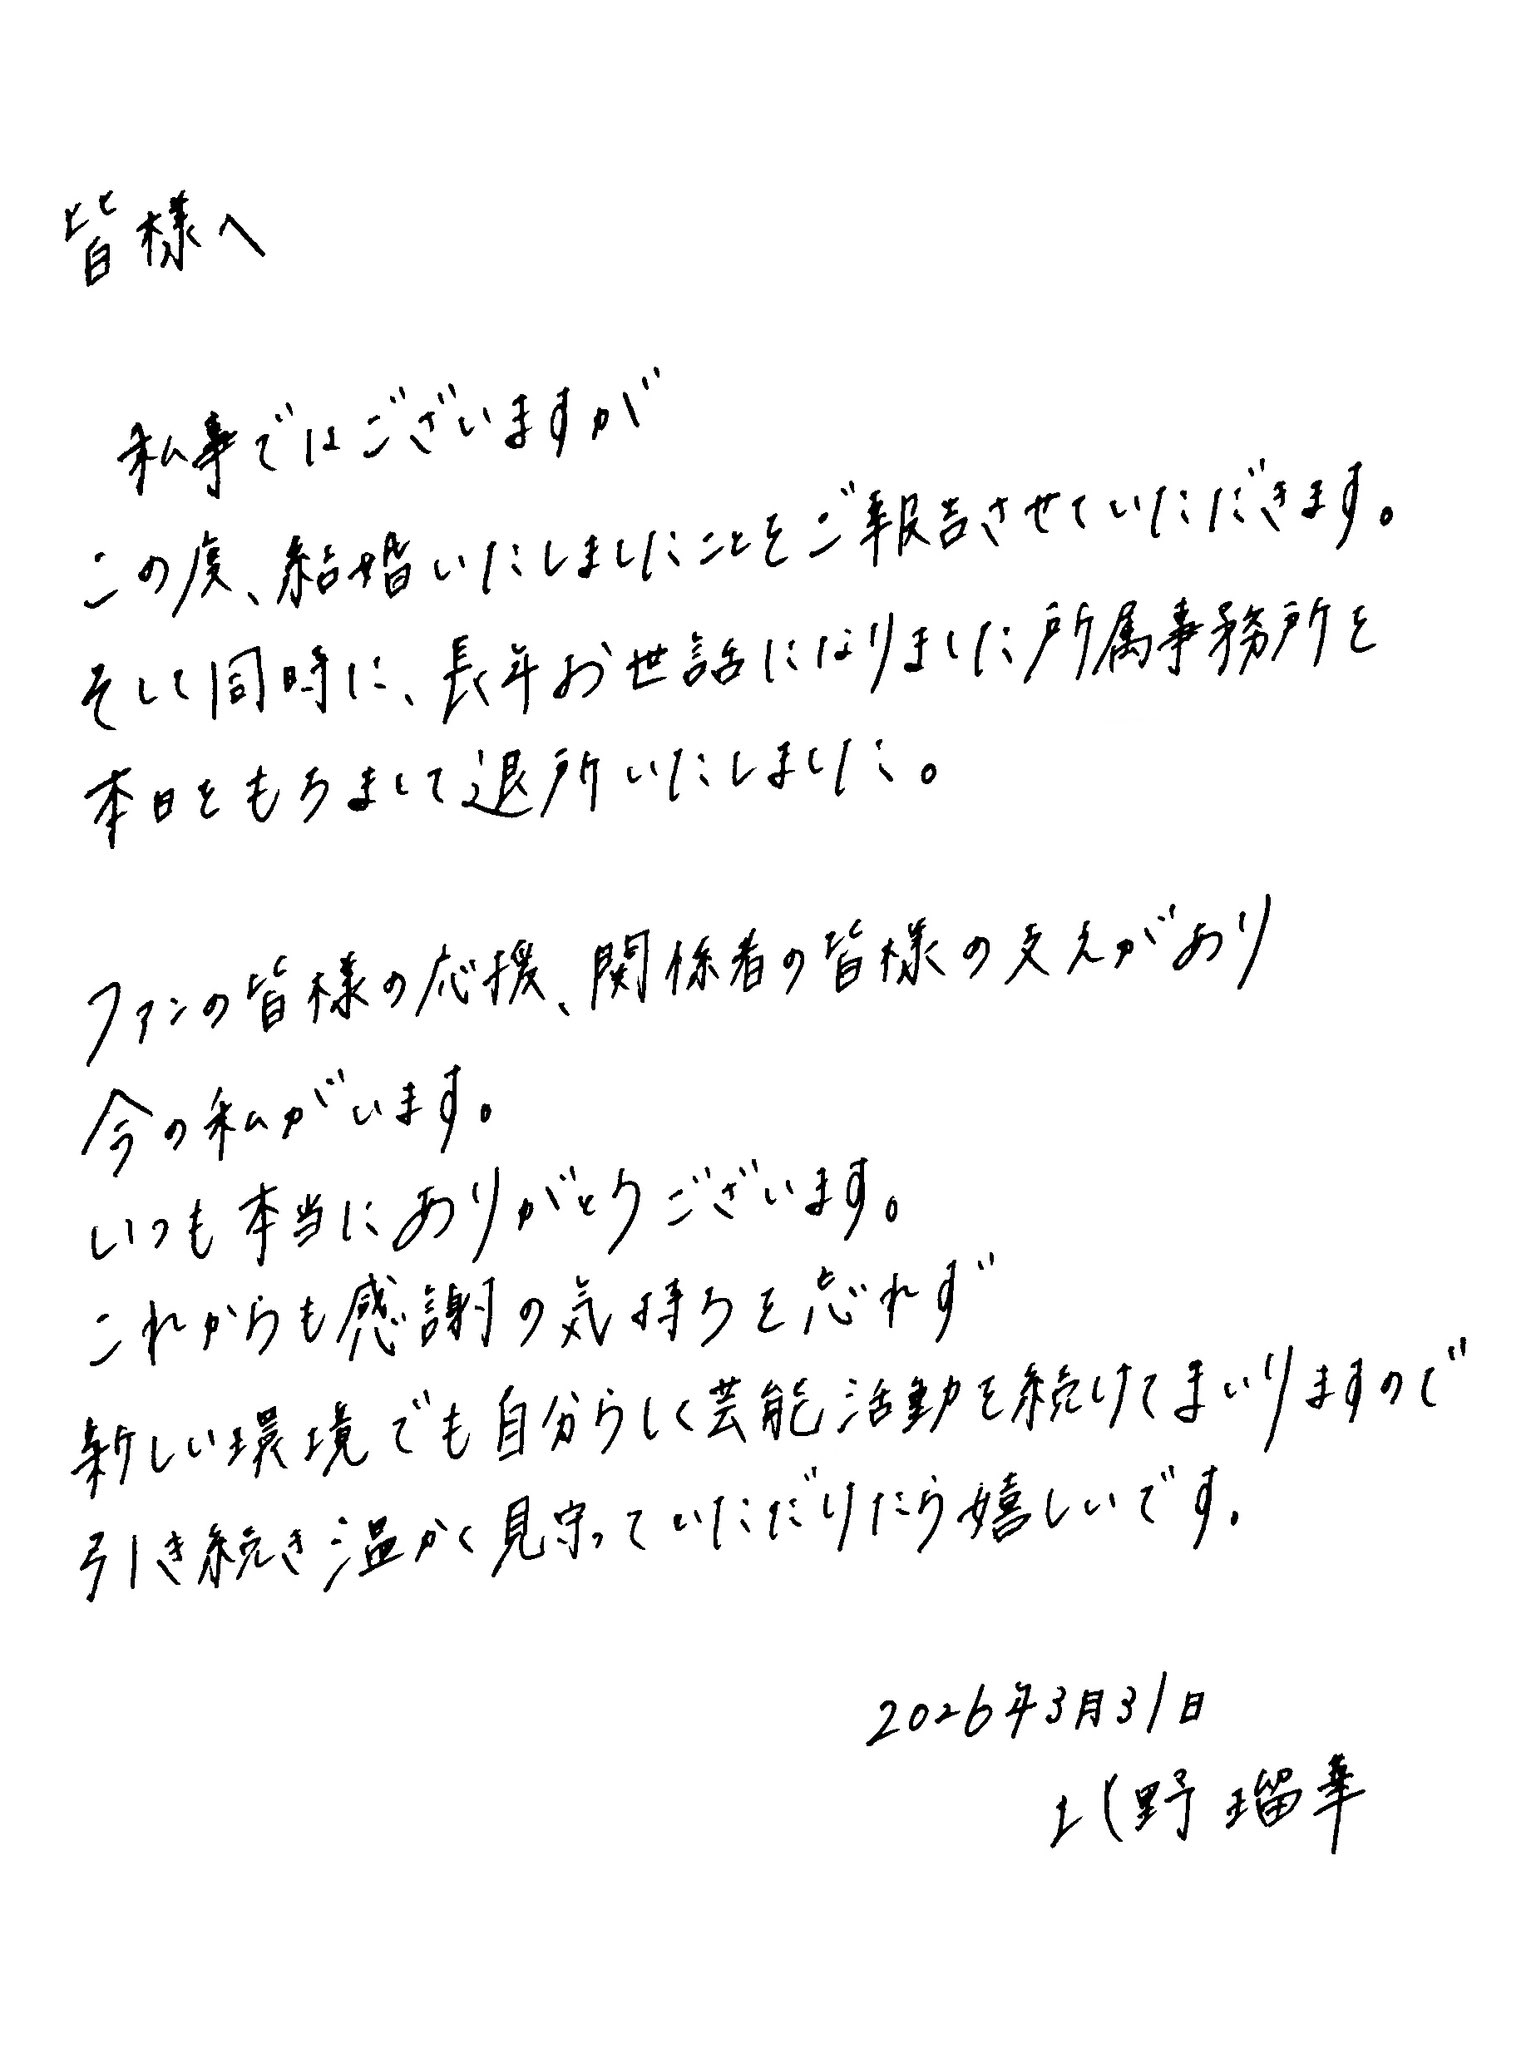 皆様へ
私事ではございますが
この度、結婚いたしましたことをご報告させていただきます。
そして同時に、長年お世話になりました所属事務所を
本日をもちまして退所いたしました。
ファンの皆様の応援、関係者の皆様の支えがあり
今の私がいます。
いつも本当にありがとうございます。
これからも感謝の気持ちを忘れず
新しい環境でも自分らしく芸能活動を続けてまいりますので
引き続き温かく見守っていただけたら嬉しいです。
2026年3月31日
野瑠華